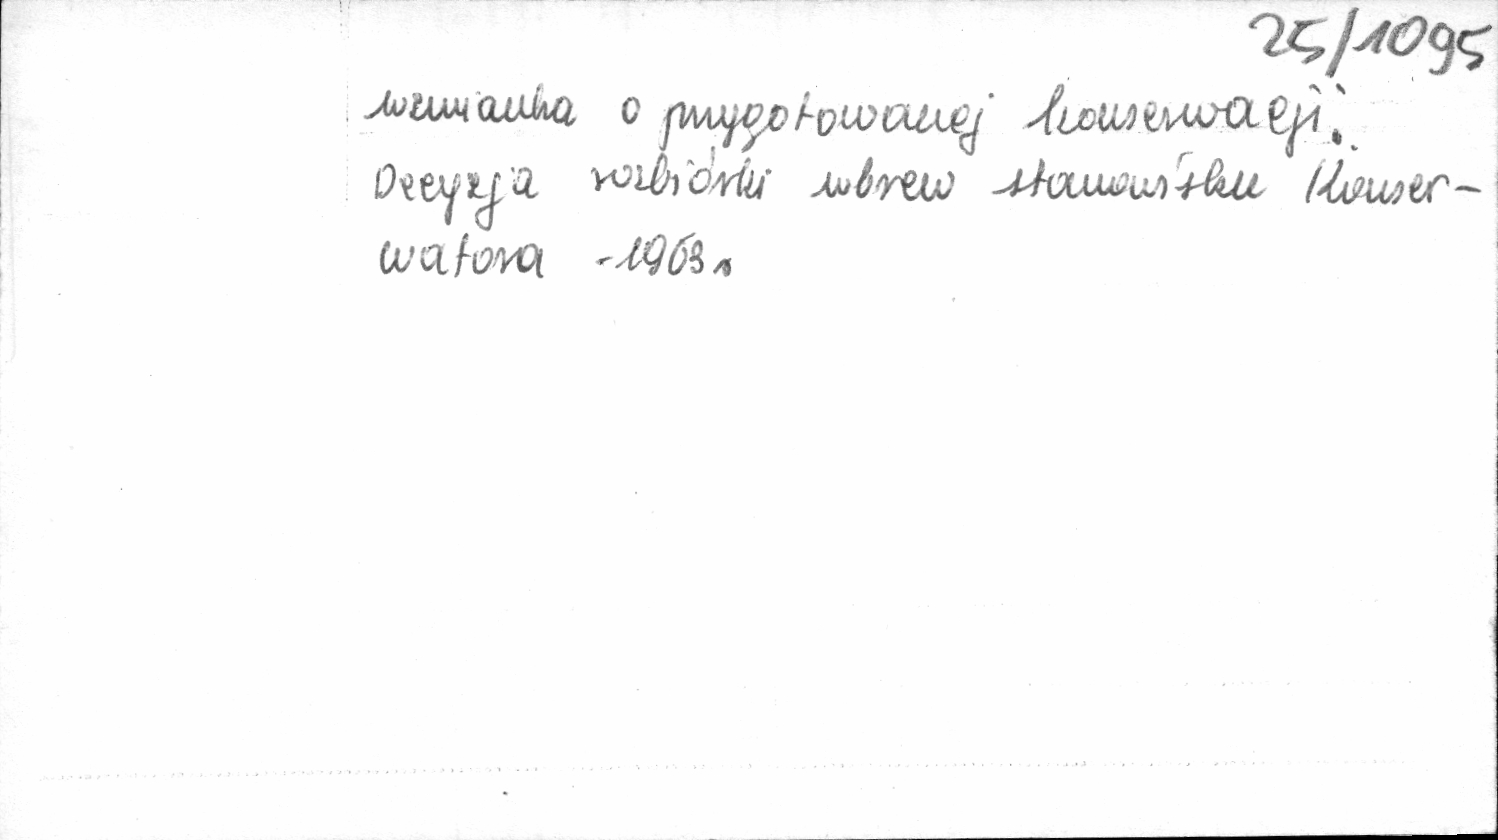 25/1095
wzmianka o przygotowanej konserwacji.
Decyzja rozbiórki wbrew stanowisku Konser-
watora - 1963 r